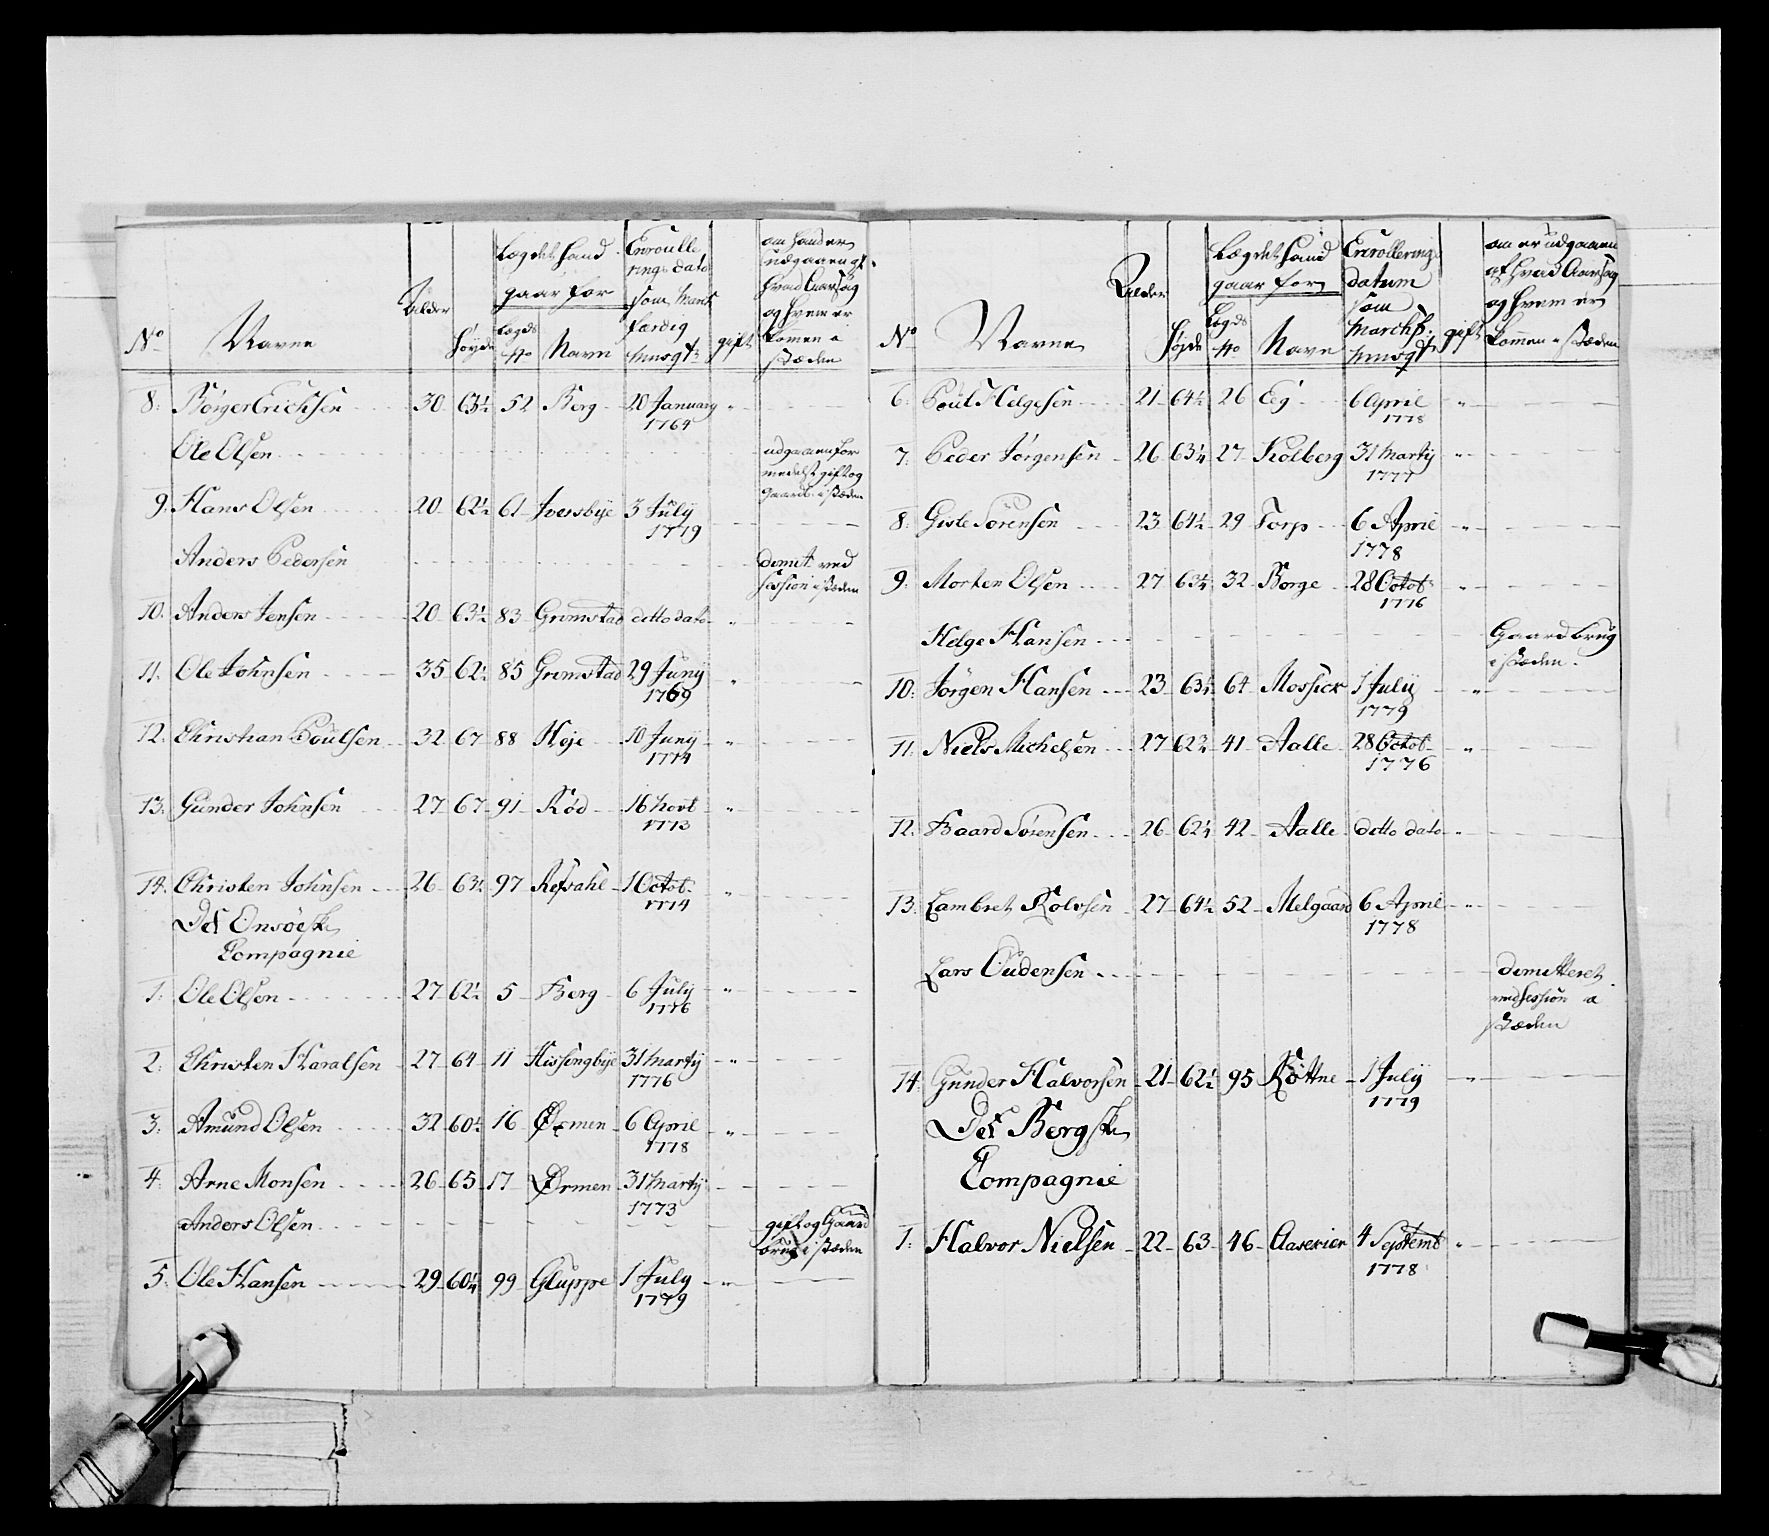 No Navne Alder Høyde Lægdet hand gaar for Lægds No Navn Enroullerings dato som March færdig munsgt: gift om hand er udgaaen af hvad Aarsag og hvem er komen i stæden
8: Börger Ericksen 30 63½ 52 Berg 20 January 1764
Ole Olsen udgaaen for medelst gift og Gaardb: i stæden
9: Hans Olsen 20 62½ 61 Iversbÿe 3 Julÿ 1779
Anders Pedersen demit: ved Session i stæden
10: Anders Jensen 20 63½ 83 Gromstad ditto dato
11: Ole Johnsen 35 62½ 85 Gromstad 29 Junÿ 1769
12: Christian Poulsen 32 67 88 Høje 10 Junÿ 1774
13: Gunder Johnsen 27 67 91 Röd 16 Novt 1773
14: Christen Johnsen 26 63½ 97 Refsahl 1 Octob: 1774
Det Onsöeske
Compagnie
1: Ole Olsen 27 62½ 5 Berg 6 Julÿ 1776
2: Christen Haralsen 27 64 11 Kissingbÿe 31 Martÿ 1776
3: Amund Olsen 32 60½ 16 Ørmen 6 April 1778
4: Arne Monsen 26 65 17 Ørmen 31 Martÿ 1773
Anders Olsen gift og Gaard brug i stæden
5: Ole Hansen 29 60¼ 99 Gluppe 1 July 1779
No Navne Alder Højde Lægdet hand gaar for Lægds No Navn Enrollerings datum som marchf: munsgt: gift om er udgaaen af hvad Aarsag og hvem er kommen i stæden
6: Poul Helgesen 21 64½ 26 Eg 6 April 1778
7: Peder Jörgensen 26 63¼ 27 Kolberg 31 Martÿ 1777
8: Gisle Sörensen 23 64½ 29 Torp 6 April 1778
9: Morten Olsen 27 63¼ 32 Borge 28 Octob: 1776
Helge Hansen Gaard brug i stæden.
10: Jörgen Hansen 23 63½ 64 Mossick 1 Julÿ 1779
11: Niels Michelsen 27 62¾ 41 Aalle 28 Octob: 1776
12: Baard Sörensen 26 62¼ 42 Aalle ditto dato
13: Lambret Rolvsen 27 64½ 52 Melgaard 6 April 1778
Lars Oudensen demitteret ved Session i stæden
14: Gunder Halvorsen 21 62½ 95 Röttne 1 Julÿ 1779
Det Bergske
Compagnie
1: Halvor Nielsen 22 63 46 4 Septemb 1778